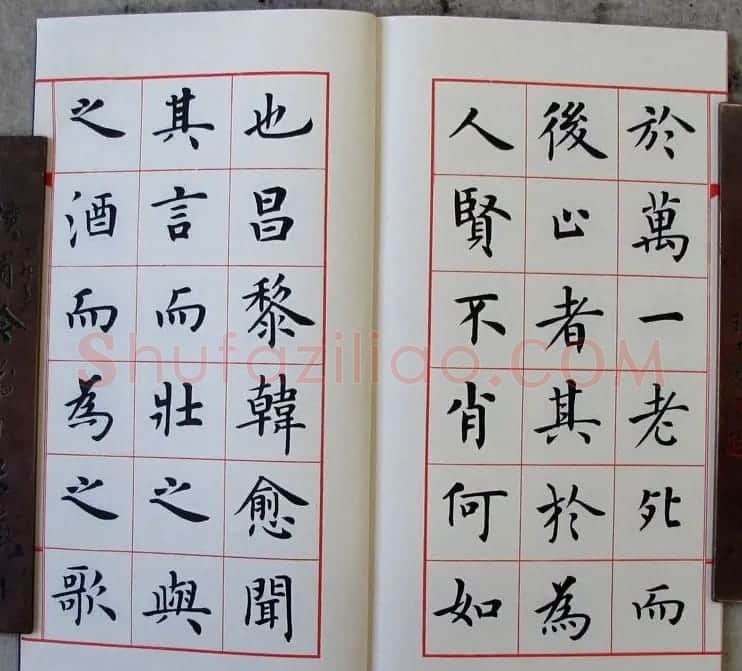 於萬一老死而
後止者其於為
人賢不肖何如
也昌黎韓愈聞
其言而壯之與
之酒而為之歌
Shufaziliao.COM